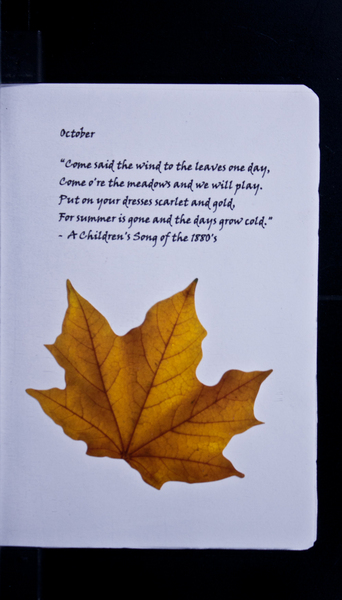 October
"Come said the wind to the leaves one day,
Come o're the meadows and we will play.
Put on your dresses scarlet and gold,
For summer is gone and the days grow cold."
- A Children's Song of the 1880's